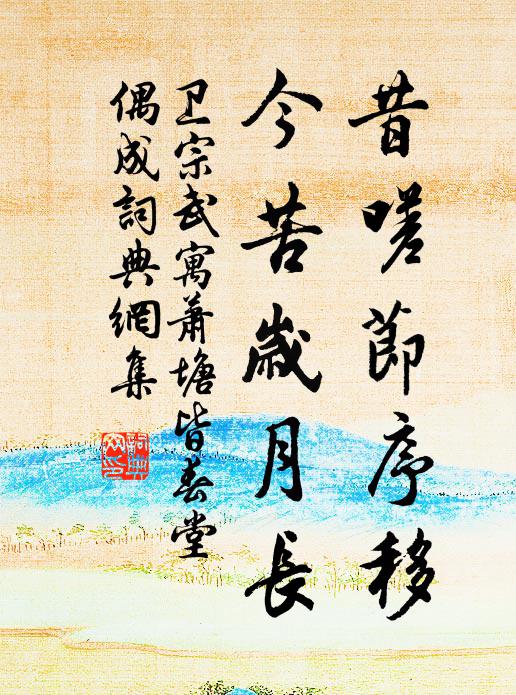 昔嗟節序移
今苦歲月長
卫宗武寓蕭塘皆春堂
偶成詞典網集